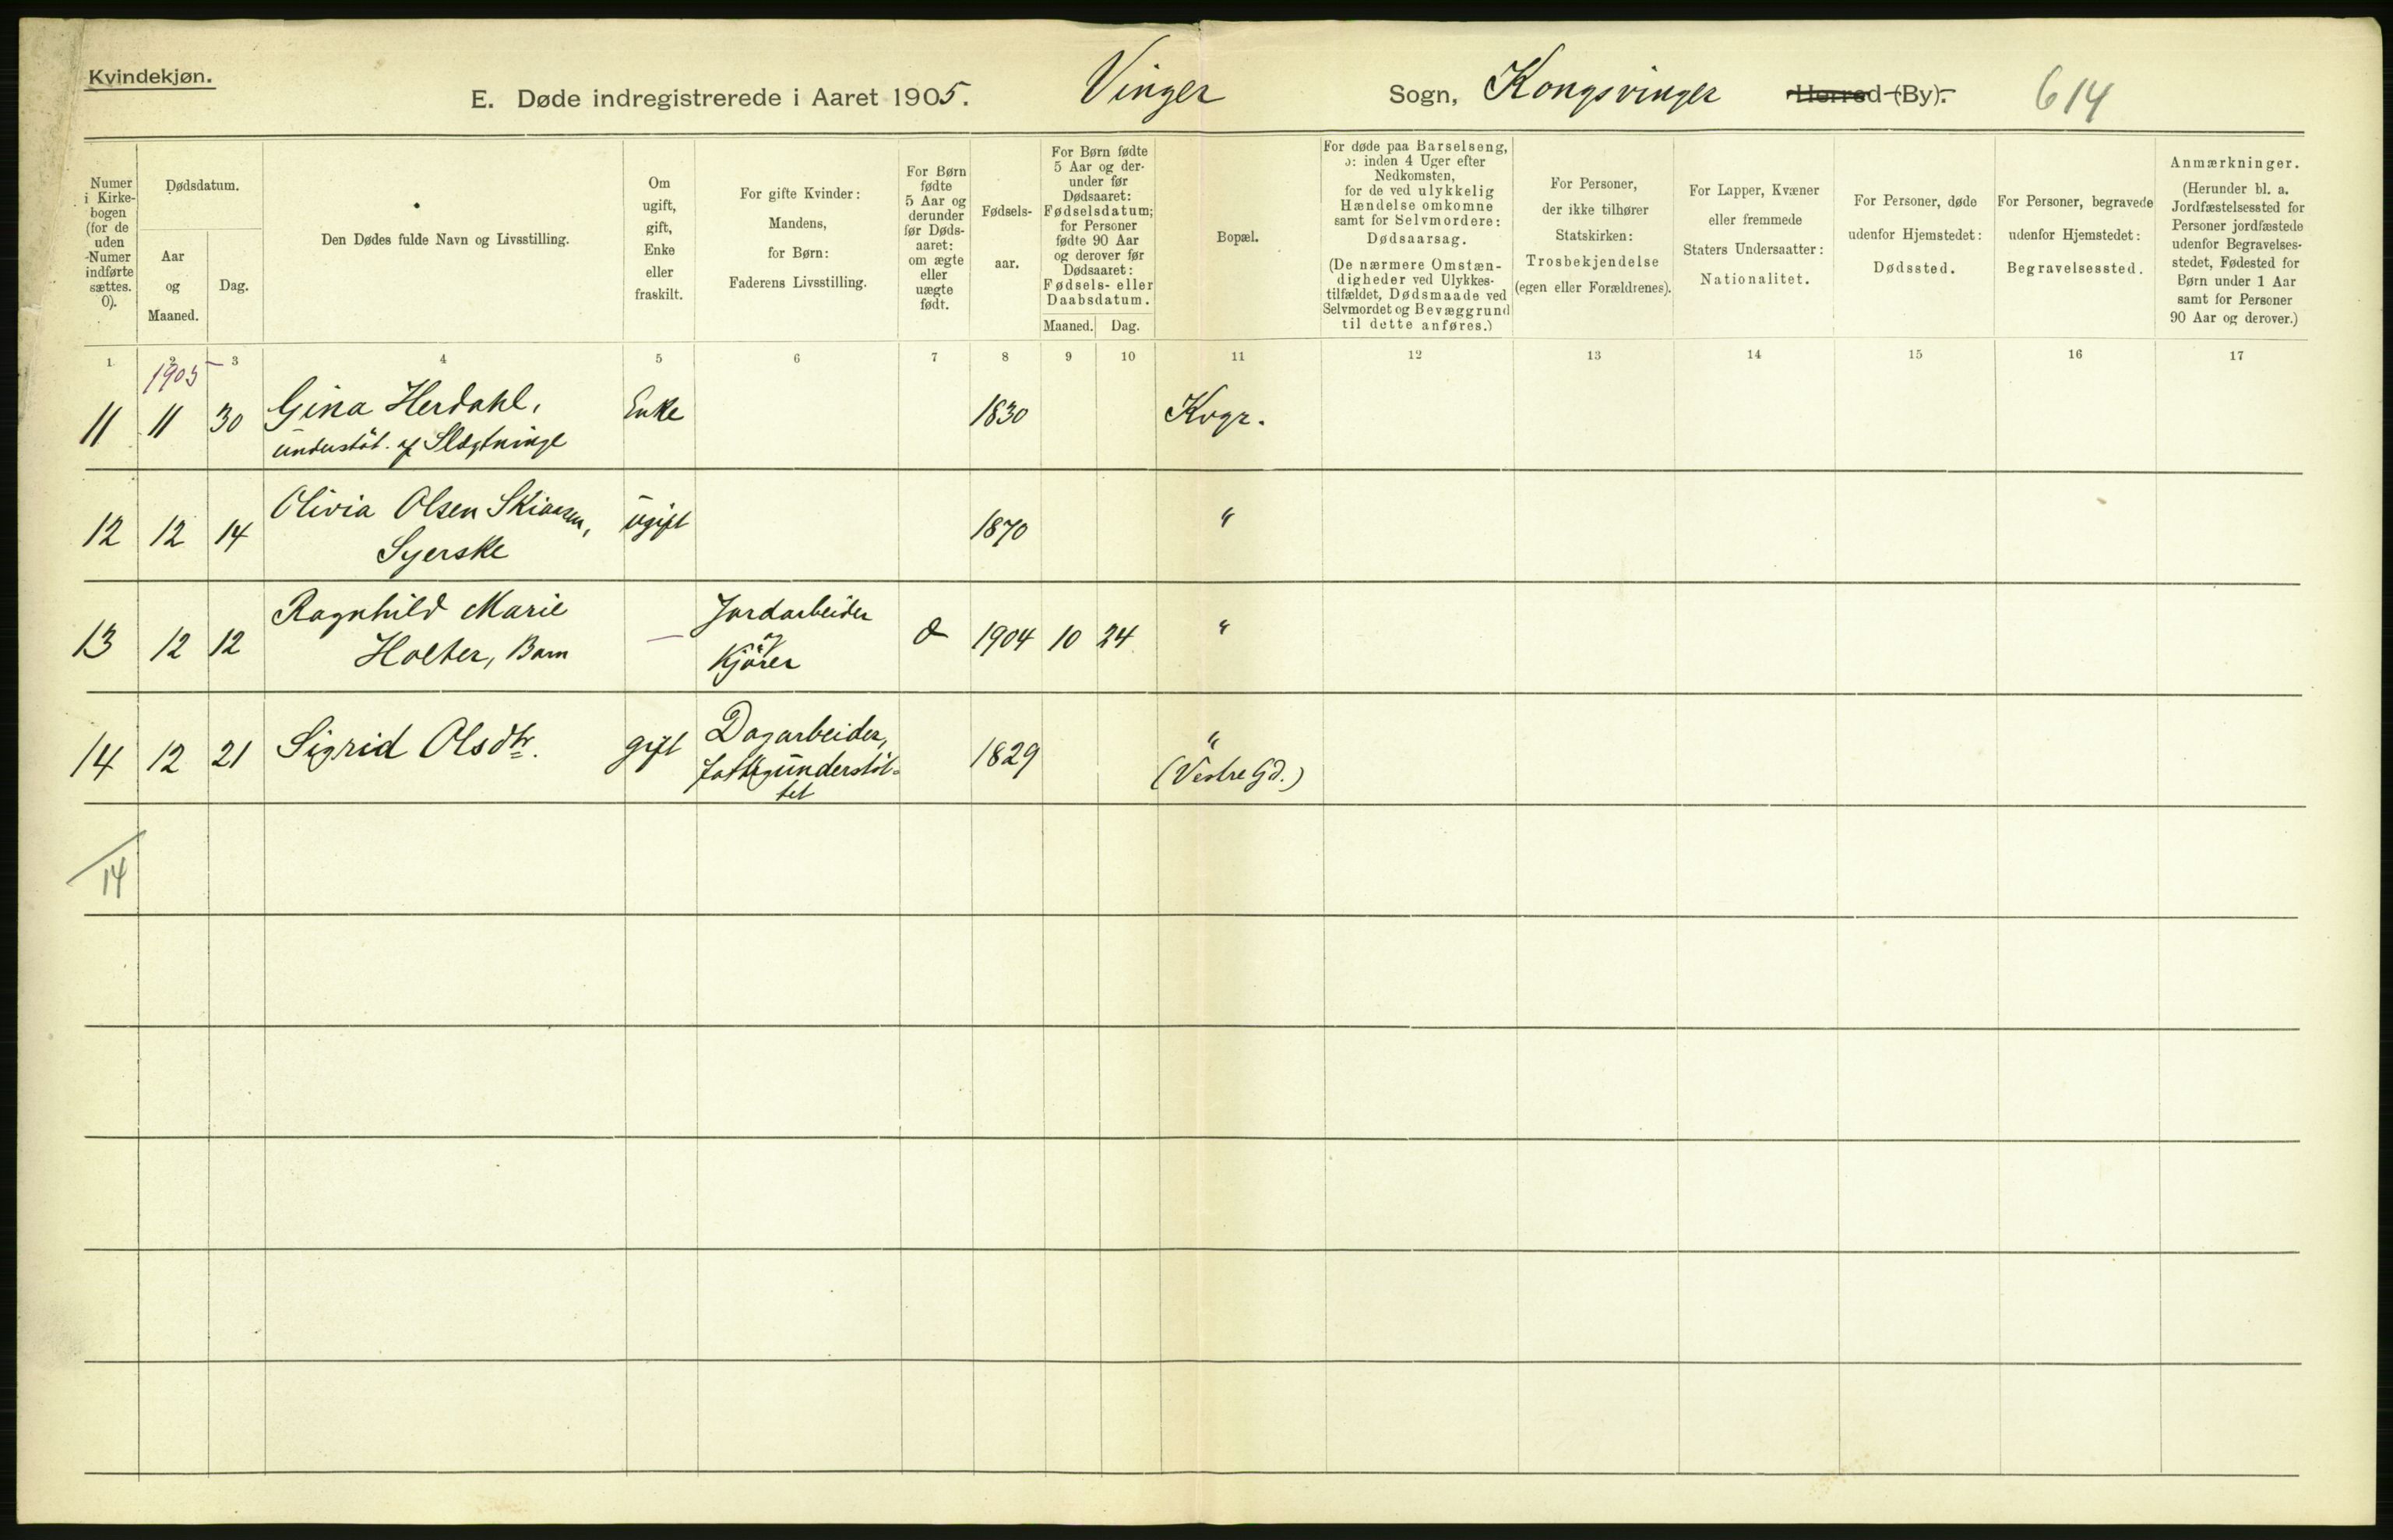 Kvindekjøn.
E. Døde indregistrerede i Aaret 1905. Vinger Sogn, Kongsvinger Herred (By). 614
Numer i Kirkebogen (for de uden Numer indførte sættes. 0).
Dødsdatum.
Aar og Maaned.
Dag.
Den Dødes fulde Navn og Livsstilling.
Om ugift, gift, Enke eller fraskilt.
For gifte Kvinder: Mandens, for Børn: Faderens Livsstilling.
For Børn fødte 5 Aar og derunder før Dødsaaret: om ægte eller uægte født.
Fødselsaar.
For Børn fødte 5 Aar og derunder før Dødsaaret: Fødselsdatum; for Personer fødte 90 Aar og derover før Dødsaaret: Fødsels- eller Daabsdatum.
Maaned. Dag.
Bopæl.
For døde paa Barselseng, ɔ: inden 4 Uger efter Nedkomsten, for de ved ulykkelig Hændelse omkomne samt for Selvmordere: Dødsaarsag. (De nærmere Omstændigheder ved Ulykkestilfældet, Dødsmaade ved Selvmordet og Bevæggrund til dette anføres.)
For Personer, der ikke tilhører Statskirken: Trosbekjendelse (egen eller Forældrenes).
For Lapper, Kvæner eller fremmede Staters Undersaatter: Nationalitet.
For Personer, døde udenfor Hjemstedet: Dødssted.
For Personer, begravede udenfor Hjemstedet: Begravelsessted.
Anmærkninger. (Herunder bl. a. Jordfæstelsessted for Personer jordfæstede udenfor Begravelsesstedet, Fødested for Børn under 1 Aar samt for Personer 90 Aar og derover.)
1 2 3 4 5 6 7 8 9 10 11 12 13 14 15 16 17
1905
11 11 30 Gina Herdahl, Enke 1830 Kvgr.
understöt. af Slægtninge
12 12 14 Olivia Olsen ugift 1870 "
Syerske
13 12 12 Ragnhild Marie — Jordarbeider æ 1904 10 24 "
Holter, Barn og Kjörer
14 12 21 Sigrid Olsdtr. gift Dagarbeider, 1829 "
fattigunderstöt- (Vestre Gd.)
tet
14